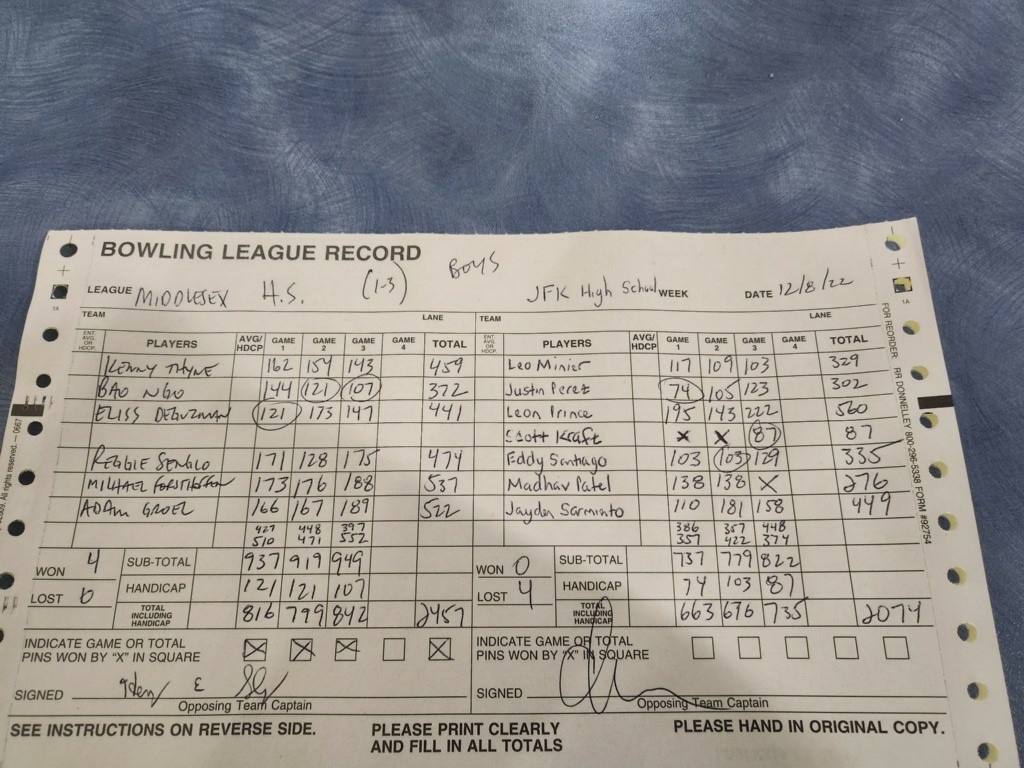 BOWLING LEAGUE RECORD
BOYS
LEAGUE MIDDLESEX H.S. (1-3) JFK High School WEEK DATE 12/8/22
TEAM LANE TEAM LANE
ENT. AVG. OR HDCP. PLAYERS AVG/HDCP GAME 1 GAME 2 GAME 3 GAME 4 TOTAL ENT. AVG. OR HDCP. PLAYERS AVG/HDCP GAME 1 GAME 2 GAME 3 GAME 4 TOTAL
KENNY THYNE 162 154 143 459 Leo Minier 117 109 103 329
BAO NGO 144 121 107 372 Justin Perez 74 105 123 302
ELISS DEGUZMAN 121 173 147 441 Leon Prince 195 143 222 560
Scott Kraft X X 87 87
REGGIE 171 128 175 474 Eddy Santiago 103 103 129 335
MICHAEL 173 176 188 537 Madhav Patel 138 138 X 276
ADAM GROEL 166 167 189 522 Jayden Sarminto 110 181 158 449
427 448 397 386 357 448
510 471 552 357 422 374
WON 4 SUB-TOTAL 937 919 949 WON 0 SUB-TOTAL 737 779 822
LOST 0 HANDICAP 121 121 107 LOST 4 HANDICAP 74 103 87
TOTAL INCLUDING HANDICAP 816 799 842 2457 TOTAL INCLUDING HANDICAP 663 676 735 2074
INDICATE GAME OR TOTAL PINS WON BY "X" IN SQUARE X X X X INDICATE GAME OR TOTAL PINS WON BY "X" IN SQUARE
SIGNED SIGNED
Opposing Team Captain Opposing Team Captain
SEE INSTRUCTIONS ON REVERSE SIDE. PLEASE PRINT CLEARLY AND FILL IN ALL TOTALS PLEASE HAND IN ORIGINAL COPY.
FOR REORDER: RR DONNELLEY 800-296-5338 FORM #92754
All rights reserved. — 0667
1A
1A